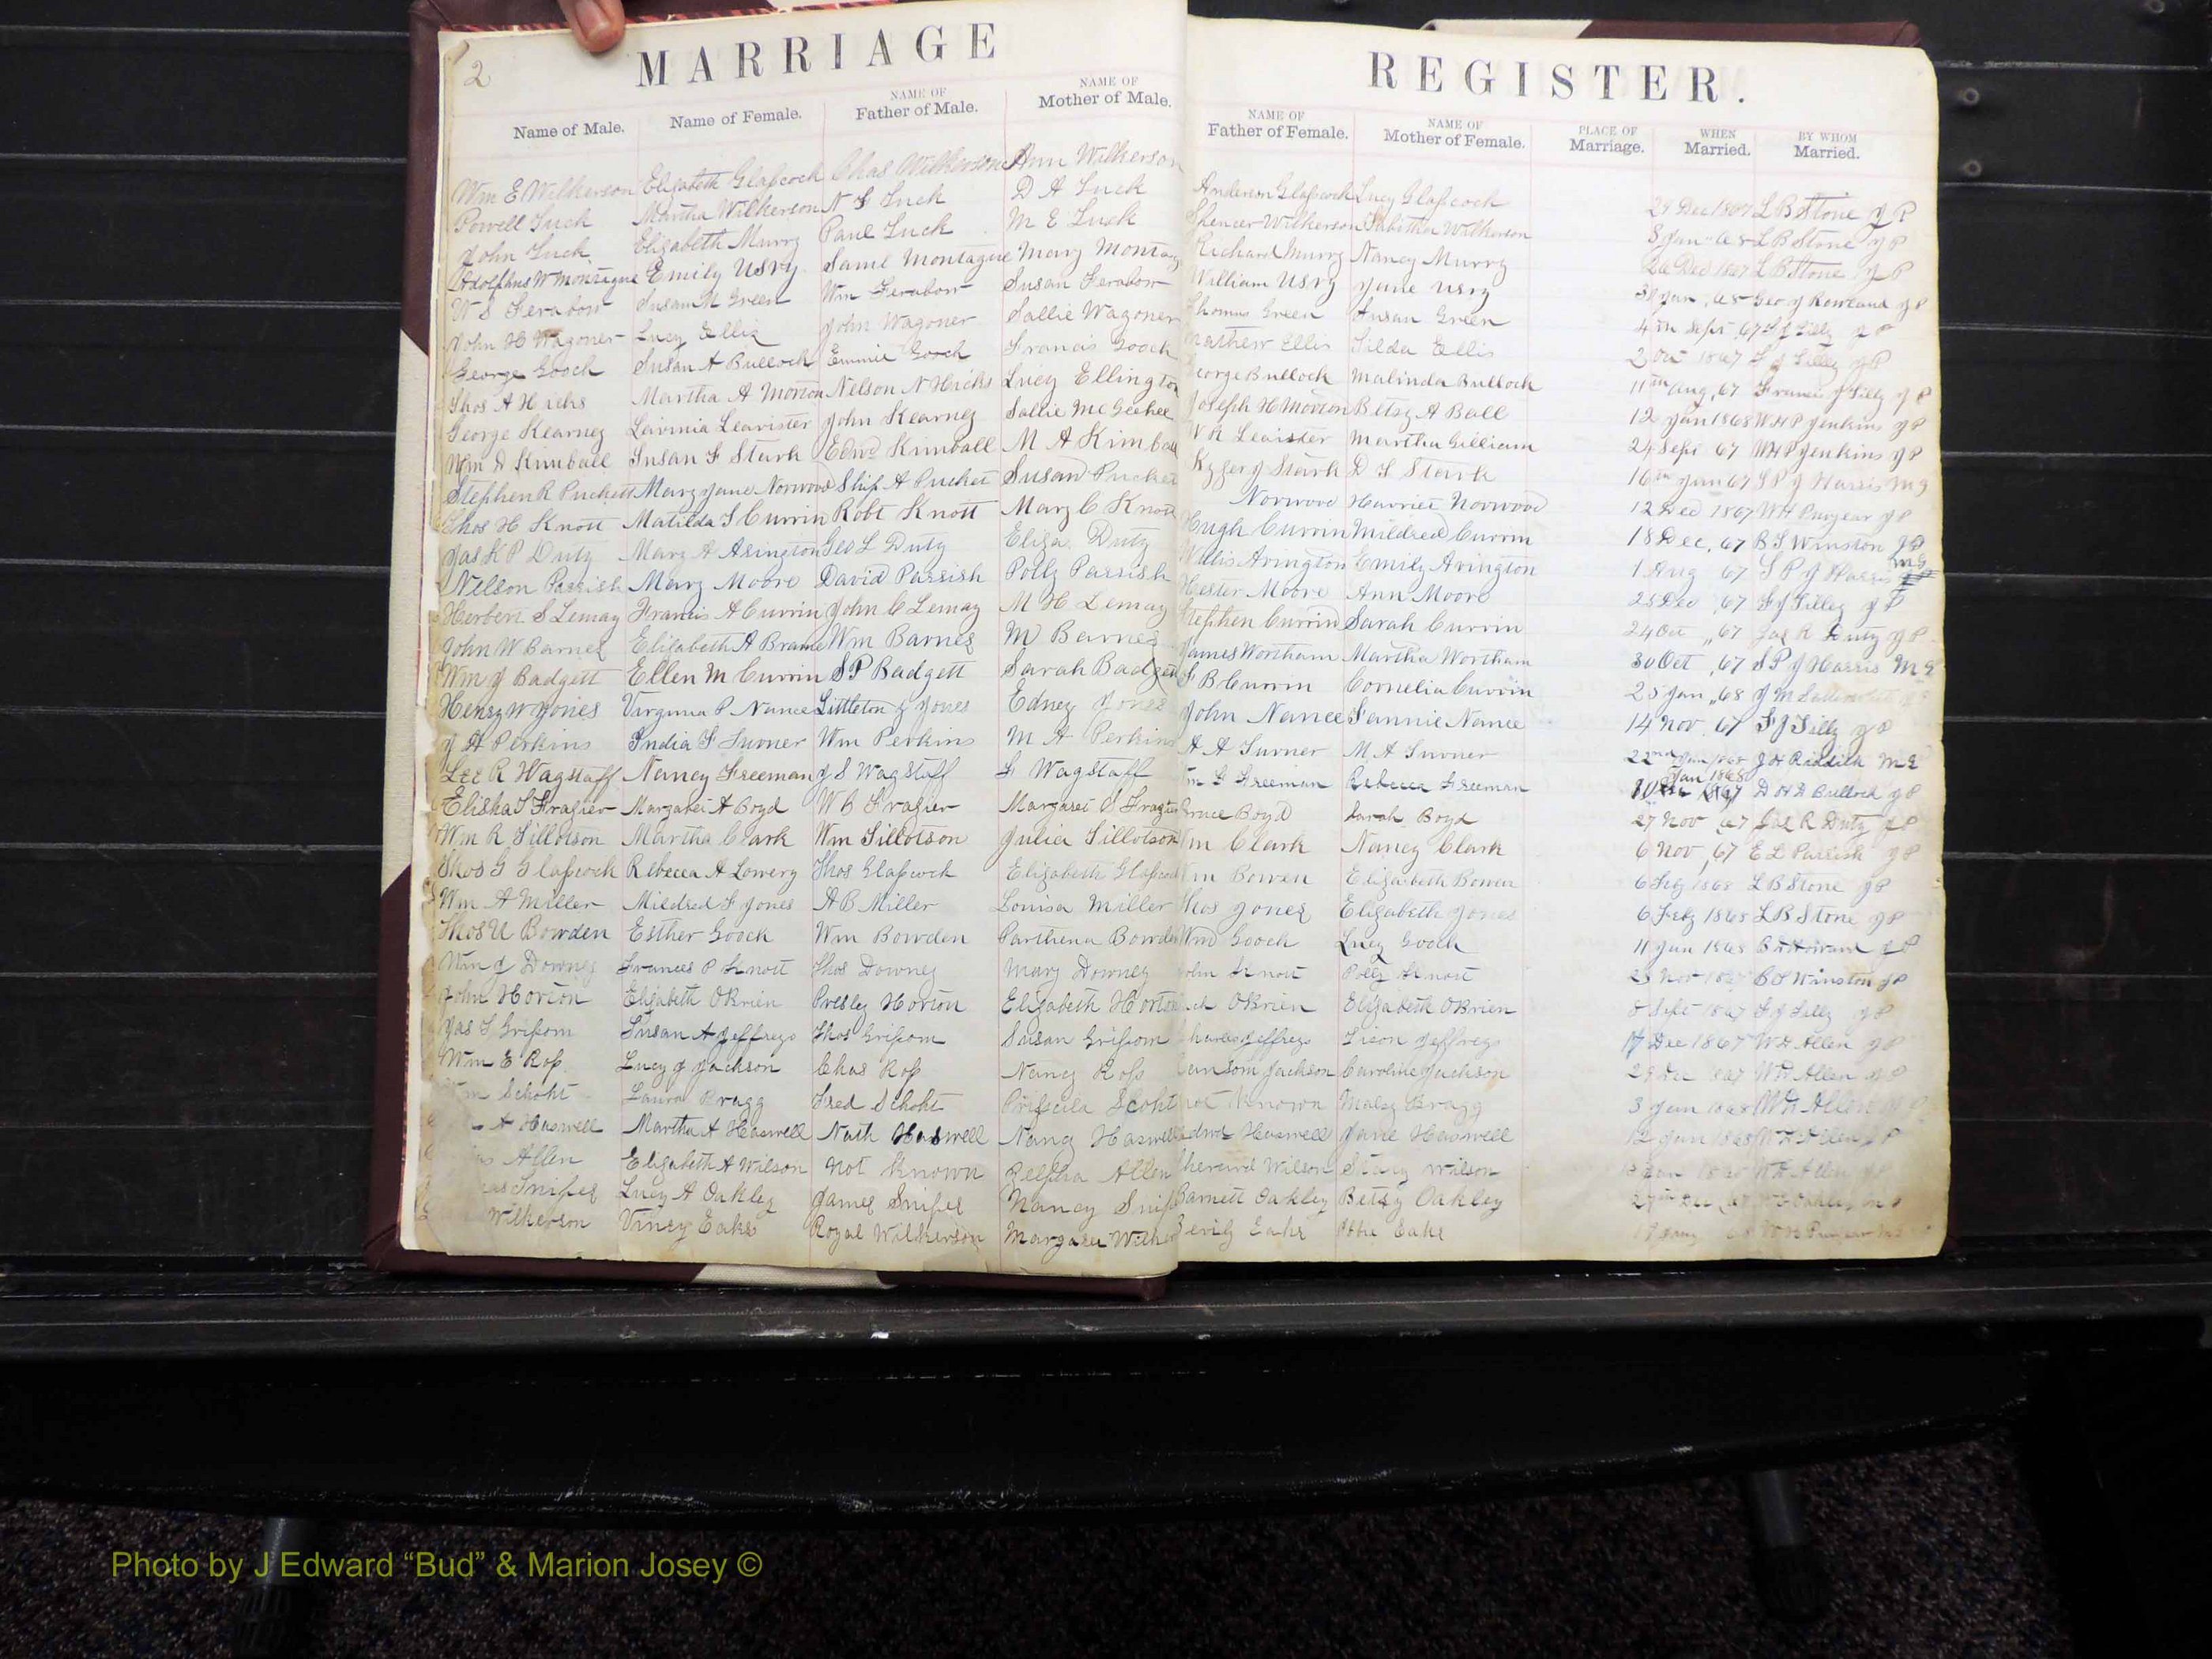 2 MARRIAGE REGISTER.
Name of Male. Name of Female. NAME OF Father of Male. NAME OF Mother of Male. NAME OF Father of Female. NAME OF Mother of Female. PLACE OF Marriage. WHEN Married. BY WHOM Married.
Wm E Wilkerson Elizabeth Glascock Chas Wilkerson Ann Wilkerson Anderson Glascock Lucy Glascock 29 Dec 1867 L B Stone J P
Powell Luck Martha Wilkerson N S Luck D A Luck Spencer Wilkerson Tabitha Wilkerson 8 Jan 68 L B Stone J P
John Luck Elizabeth Murry Paul Luck M E Luck Richard Murry Nancy Murry 26 Dec 1867 L B Stone J P
Adolphus W Montague Emily Usry Saml Montague Mary Montag William Usry Jane Usry Jan, 68 Geo J Rowland J P
W S Ferabow Susan M Green Wm Ferabow Susan Ferabow Thomas Green Susan Green 4th Sept, 67 F J Tilly J P
John H Wagoner Lucy Ellis John Wagoner Sallie Wagoner Mathew Ellis Tilda Ellis 2 Oct 1867 F J Tilly J P
George Gooch Susan A Bullock Gooch Francis Gooch George Bullock Malinda Bullock 11th Aug, 67 Francis J Tilly J P
Thos A Hicks Martha A Morton Nelson N Hicks Lucy Ellington Joseph H Morton Betsy A Ball 12 Jan 1868 W H P Jenkins J P
George Kearney Lavinia Leavister John Kearney Sallie McGeehee W R Leaister Martha Gilliam 24 Sept 67 W H P Jenkins J P
Wm D Kimball Susan F Stark Edwd Kimball M A Kimball Stark D L Stark 16th Jan 67 S P J Harris M G
Stephen R Puckett Mary Jane Norwood Ship A Pucket Susan Pucket Norwood Harriet Norwood 12 Dec 1867 W H Puryear J P
Thos H Knott Matilda S Currin Robt Knott Mary C Knott Hugh Currin Mildred Currin 18 Dec, 67 B S Winston J P
Jas K P Duty Mary A Arington Geo L Duty Eliza Duty Willis Arington Emily Arington 1 Aug 67 S P J Harris M G
Nelson Parrish Mary Moore David Parrish Polly Parrish Hester Moore Ann Moore 25 Dec, 67 F J Tilley J P
Herbert S Lemay Francis A Currin John C Lemay M H Lemay Stephen Currin Sarah Currin 24 Oct ,, 67 Jas R Duty J P
John W Barnes Elizabeth A Brame Wm Barnes M Barnes James Wortham Martha Wortham 30 Oct, 67 S P J Harris M G
Wm J Badgett Ellen M Currin S P Badgett Sarah Badgett F B Currin Cornelia Currin 25 Jan ,, 68 J M
Henry W Jones Virginia P Nance Littleton J Jones Edney Jones John Nance Fannie Nance 14 Nov, 67 F J Tilly J P
J A Perkins India F Turner Wm Perkins M A Perkins A A Turner M A Turner 22nd Jan 1868 J H Riddick M G
Lee R Wagstaff Nancy Freeman J S Wagstaff F Wagstaff Wm F Freeman Rebecca Freeman 10 Jan 1868 D H D Bullock J P
Elisha T Frazier Margaret A Boyd W B Frazier Margaret S Frazier Bruce Boyd Sarah Boyd 27 Nov, 67 Jas R Duty J P
Wm R Tillotson Martha Clark Wm Tillotson Julia Tillotson Wm Clark Nancy Clark 6 Nov, 67 E L Parrish J P
Thos G Glascock Rebecca A Lowery Thos Glascock Elizabeth Glascock Wm Bowen Elizabeth Bowen 6 Feb 1868 L B Stone J P
Wm A Miller Mildred F Jones A B Miller Louisa Miller Thos Jones Elizabeth Jones 6 Feby 1868 L B Stone J P
Thos U Bowden Esther Gooch Wm Bowden Parthena Bowden Wm Gooch Lucy Gooch 11 Jan 1868 Howard J P
Wm J Downey Frances P Knott Thos Downey Mary Downey John Knott Polly Knott 25 Nov 1867 B S Winston J P
John Horton Elizabeth OBrien Presley Horton Elizabeth Horton OBrien Elizabeth OBrien 8 Sept 1867 F J Tilly J P
Jas T Grissom Susan A Jeffreys Thos Grissom Susan Grissom Charles Jeffreys Jeffreys 17 Dec 1867 W H Allen J P
Wm E Ross Lucy J Jackson Chas Ross Nancy Ross Ransom Jackson Caroline Jackson 29 Dec 1867 W H Allen J P
Wm Schoht Laura Bragg Fred Schoht Priscila Scoht not Known Malsy Bragg 3 Jan 1868 W H Allen J P
A Haswell Martha A Haswell Nath Haswell Nancy Haswell Edwd Haswell Jane Haswell 12 Jan 1868 W H Allen J P
Allen Elizabeth A Wilson not Known Relpha Allen Wilson Wilson Jan W H Allen J P
Snipes Lucy A Oakley James Snipes Nancy Snip Barnett Oakley Betsy Oakley 27th Dec, 67 Oakley
Wilkerson Viney Eaks Royal Wilkerson Margaret Wilker Eaks Eaks 68 W H Puryear
Photo by J Edward “Bud” & Marion Josey ©